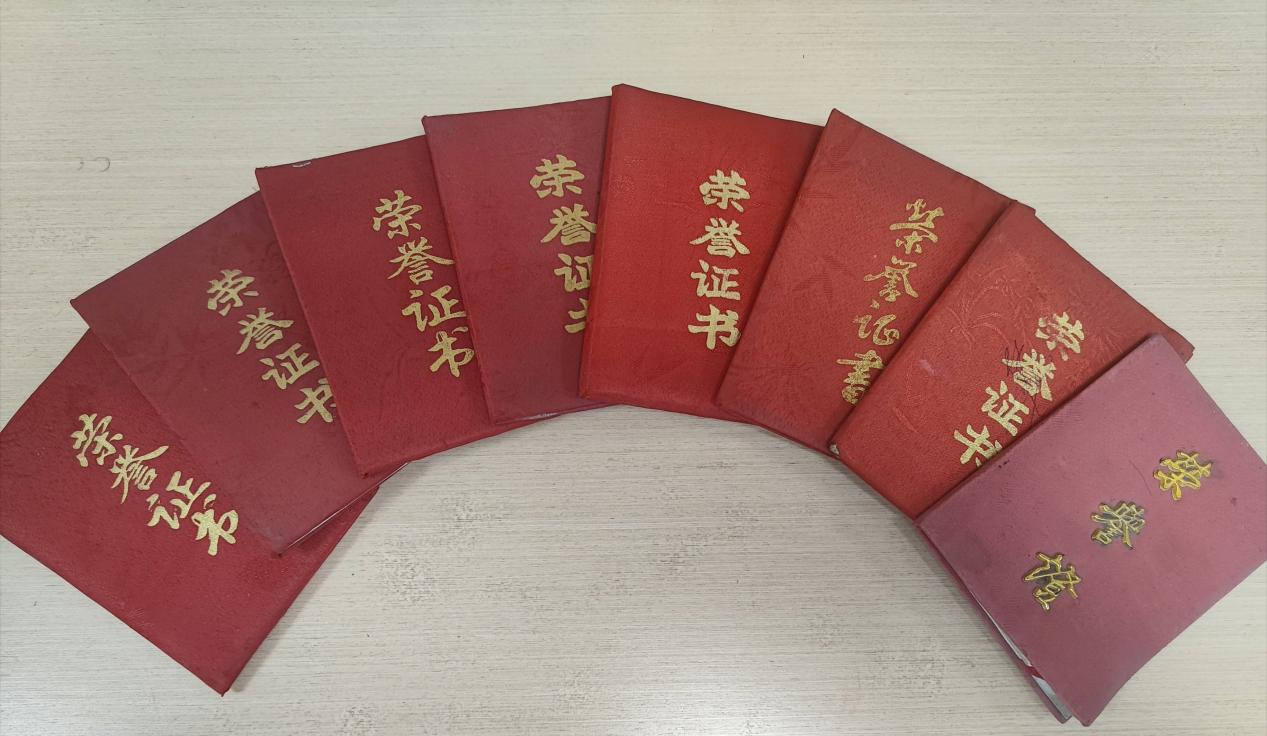 荣誉证书
荣誉证书
荣誉证书
荣誉证书
荣誉证书
荣誉证書
荣誉证书
榮譽證